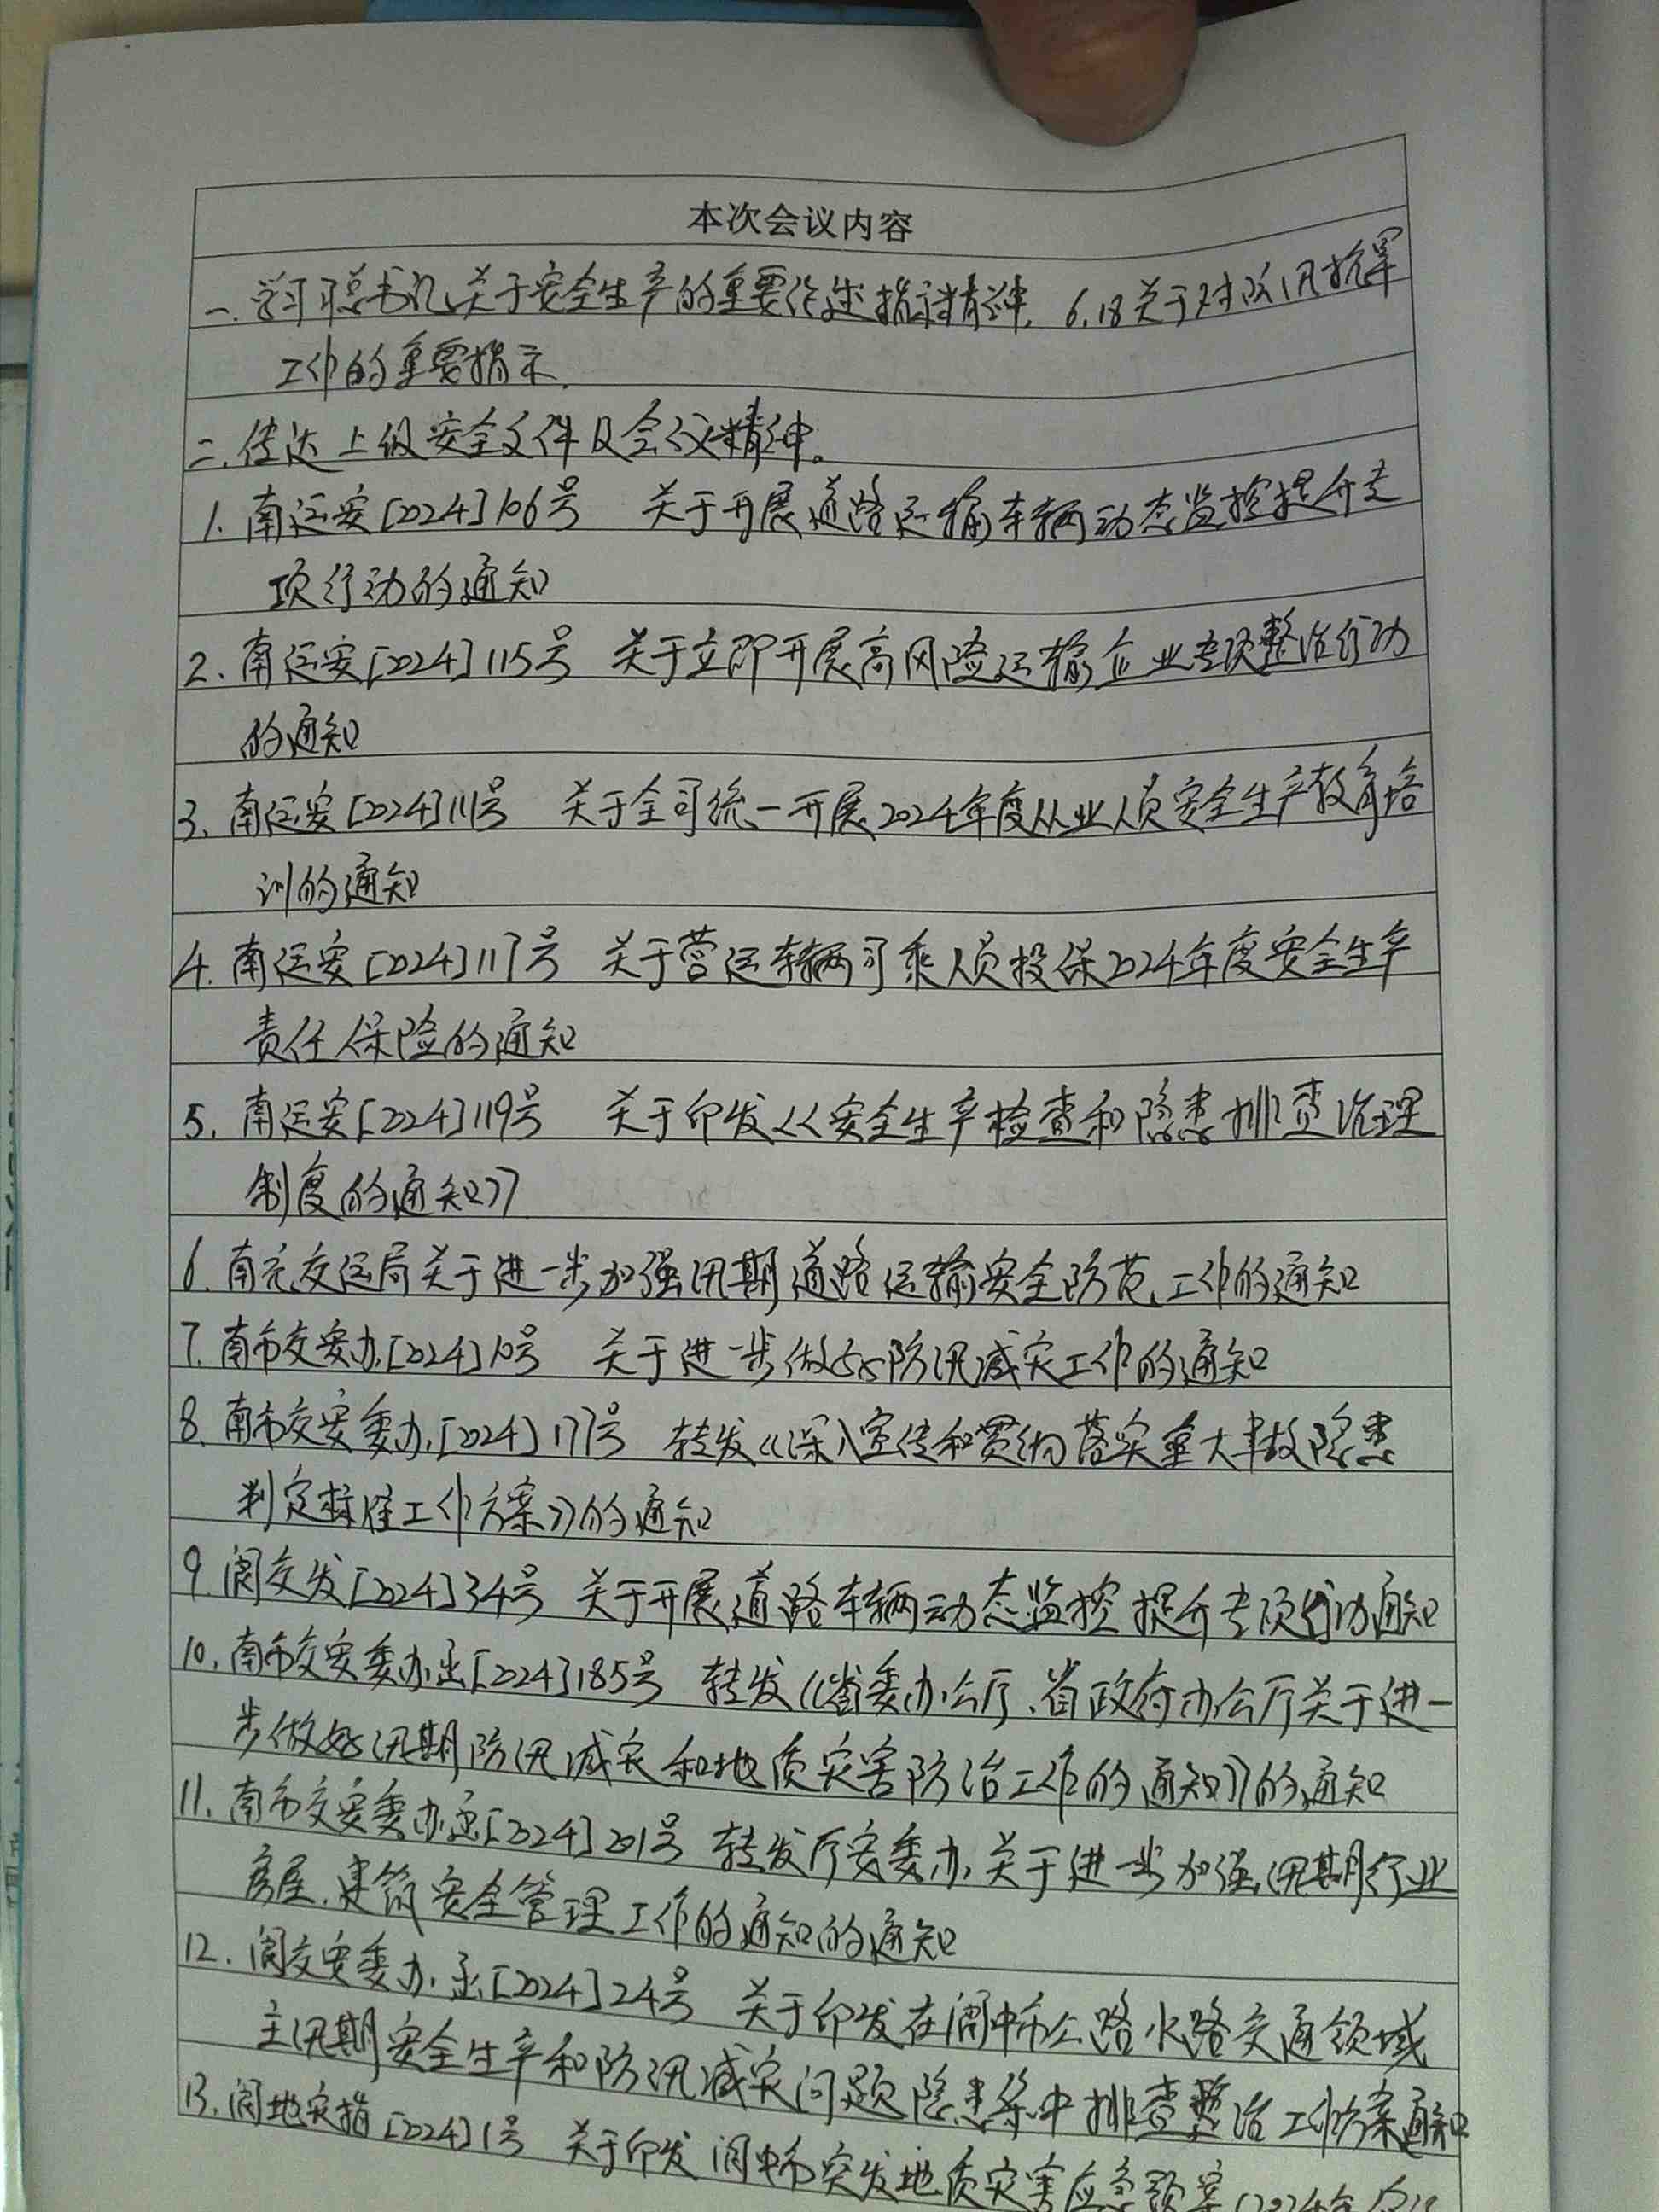 本次会议内容
一.学习总书记关于安全生产的重要论述指示精神. 6.18关于对防汛抗旱
工作的重要指示.
二.传达上级安全文件及会议精神。
1.南运安[2024]106号 关于开展道路运输车辆动态监控提升专
项行动的通知
2.南运安[2024]115号 关于立即开展高风险运输企业专项整治行动
的通知
3.南运安[2024]111号 关于全司统一开展2024年度从业人员安全生产教育培
训的通知
4.南运安[2024]117号 关于营运车辆司乘人员投保2024年度安全生产
责任保险的通知
5.南运安[2024]119号 关于印发《安全生产检查和隐患排查治理
制度的通知》
6.南充交运局关于进一步加强汛期道路运输安全防范工作的通知
7.南市交安办[2024]10号 关于进一步做好防汛减灾工作的通知
8.南市交安委办[2024]177号 转发《深入宣传和贯彻落实重大事故隐患
判定标准工作方案》的通知
9.阆交发[2024]34号 关于开展道路车辆动态监控提升专项行动通知
10.南市交安委办函[2024]185号 转发《省委办公厅、省政府办公厅关于进一
步做好汛期防汛减灾和地质灾害防治工作的通知》的通知
11.南市交安委办函[2024]201号 转发厅安委办关于进一步加强汛期行业
房屋.建筑安全管理工作的通知的通知
12.阆交安委办函[2024]24号 关于印发在阆中市公路水路交通领域
主汛期安全生产和防汛减灾问题隐患集中排查整治工作方案通知
13.阆地灾指[2024]1号 关于印发阆中市突发地质灾害应急预案(2024年